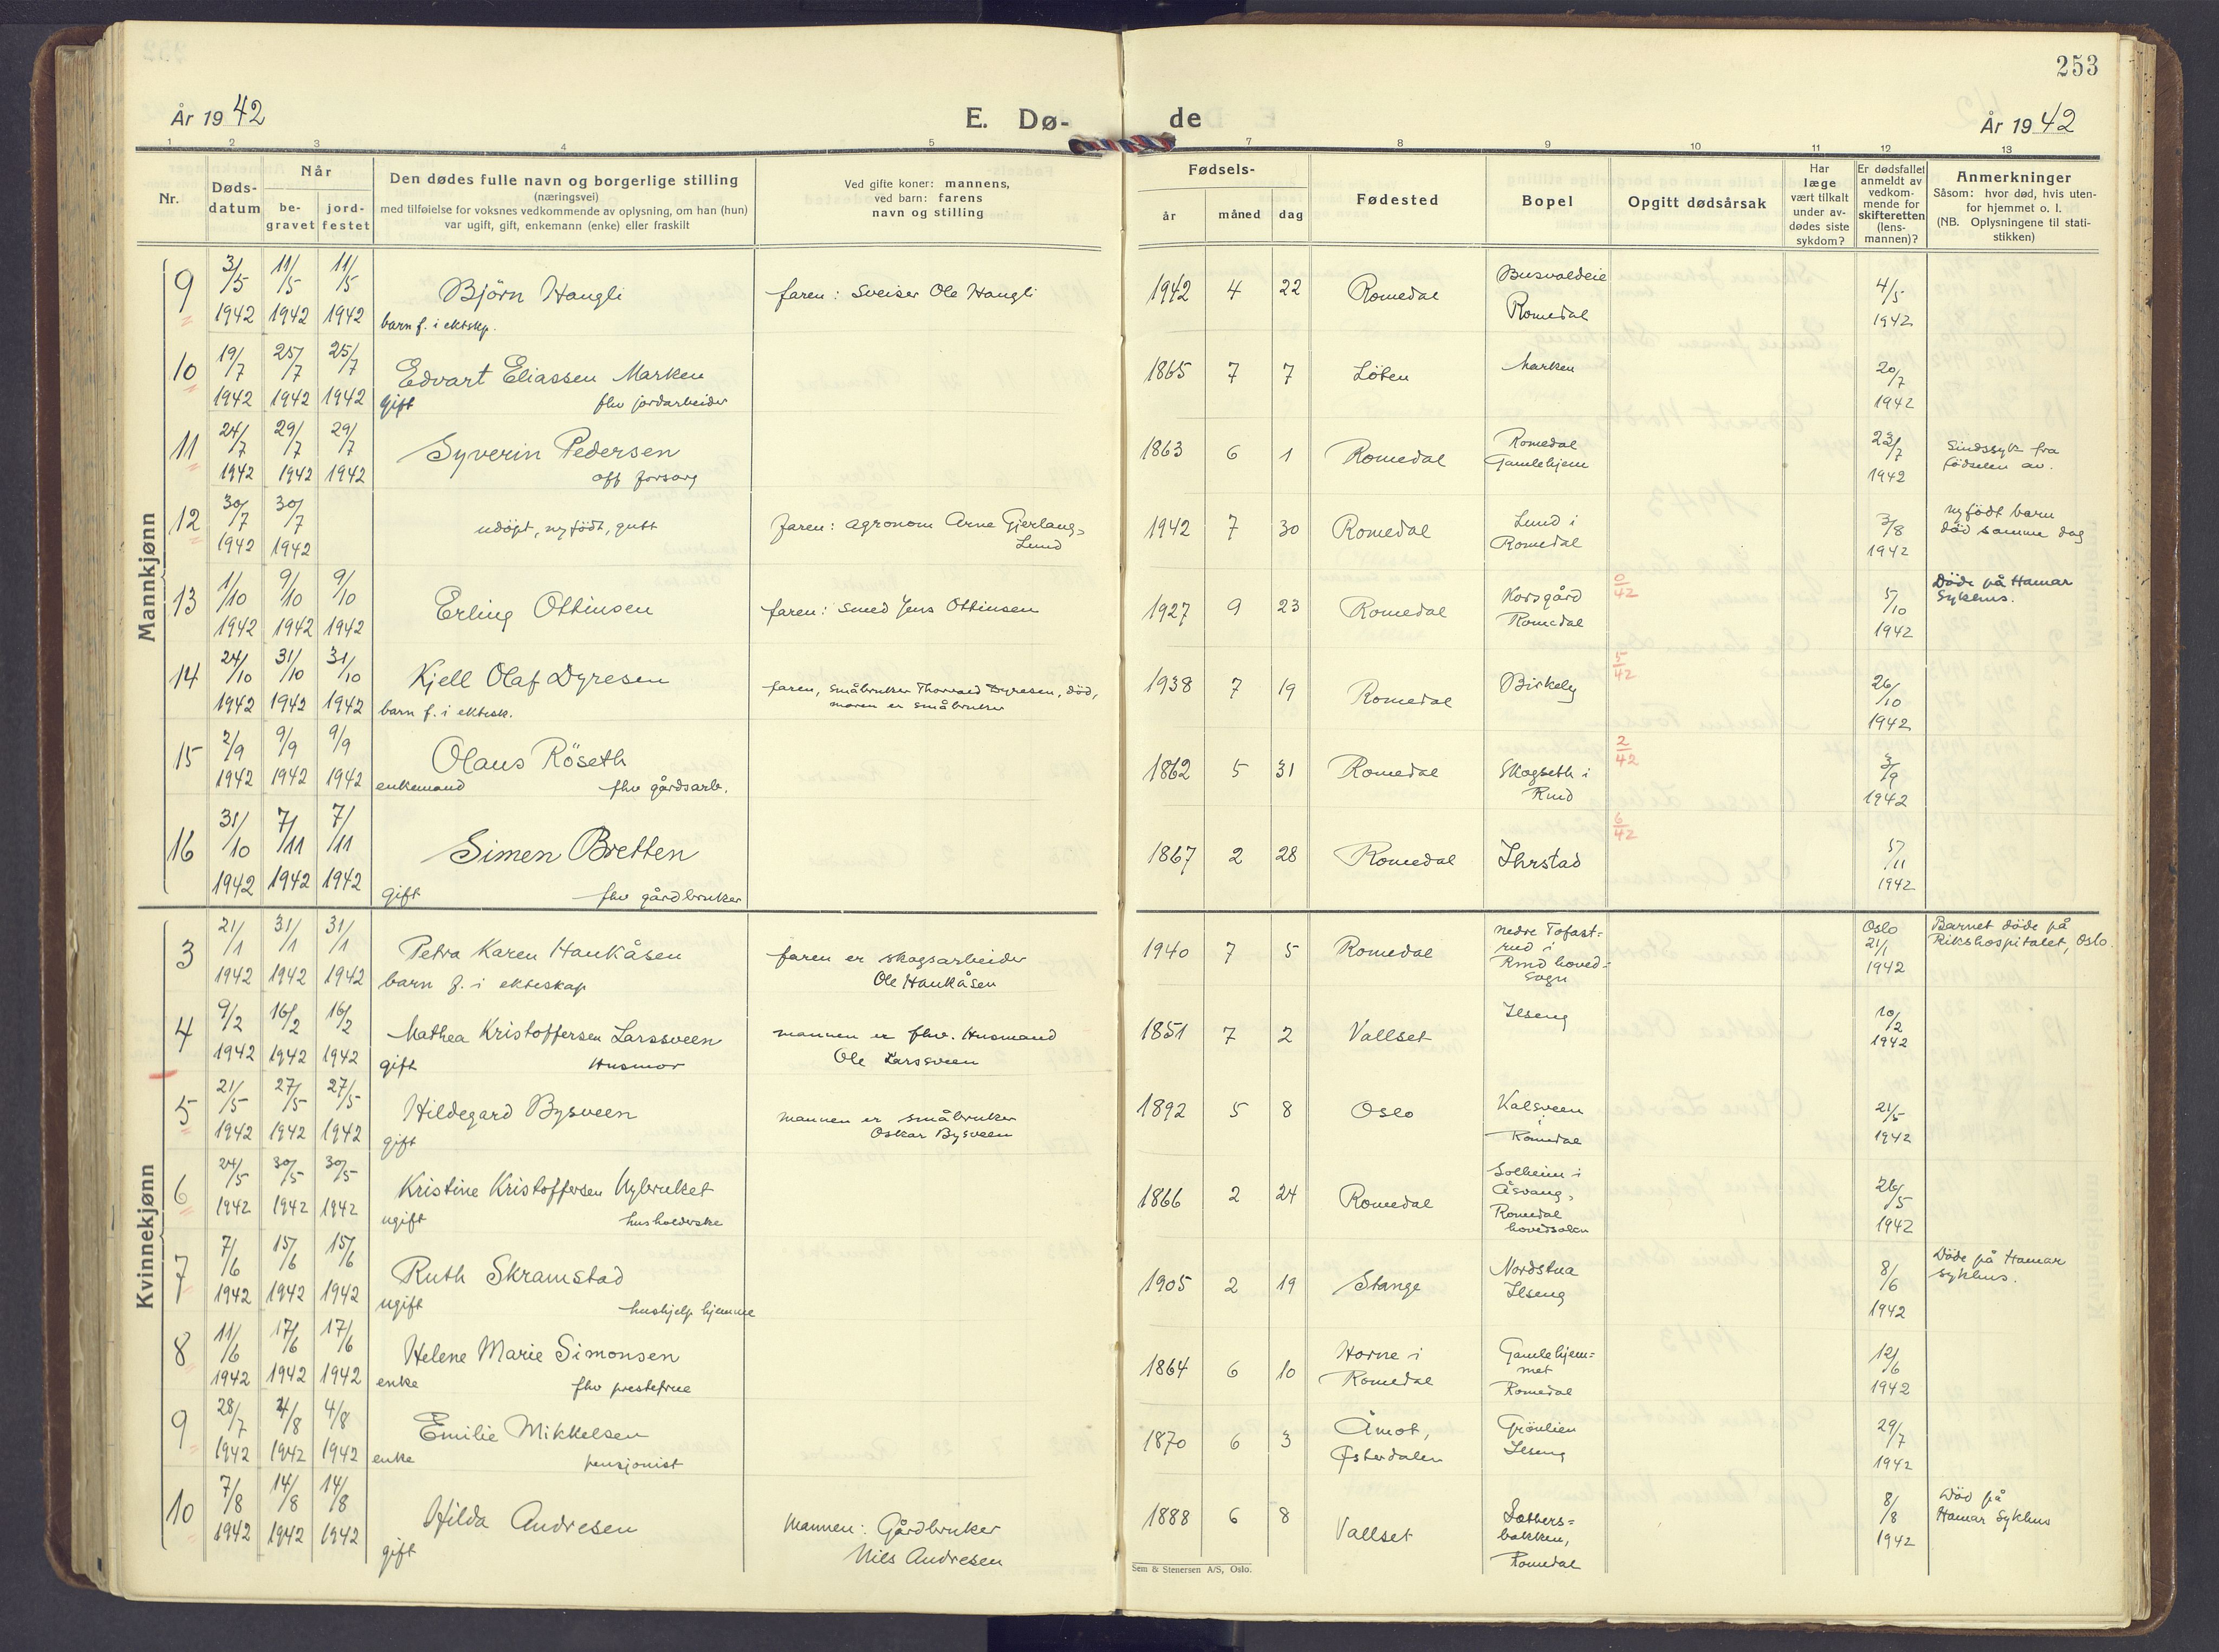 253
År 1942
E. Dø-
de
År 1942
1 2 3 4 5 7 8 9 10 11 12 13
Nr.
Døds-
datum
Når
be-
gravet
jord-
festet
Den dødes fulle navn og borgerlige stilling
(næringsvei)
med tilføielse for voksnes vedkommende av oplysning, om han (hun)
var ugift, gift, enkemann (enke) eller fraskilt
Ved gifte koner: mannens,
ved barn: farens
navn og stilling
Fødsels-
år måned dag
Fødested
Bopel
Opgitt dødsårsak
Har
læge
vært tilkalt
under av-
dødes siste
sykdom?
Er dødsfallet
anmeldt av
vedkom-
mende for
skifteretten
(lens-
mannen)?
Anmerkninger
Såsom: hvor død, hvis uten-
for hjemmet o. l.
(NB. Oplysningene til stati-
stikken)
Mannkjønn
9 3/5 1942 11/5 1942 11/5 1942 Björn Haugli
barn f. i ektskp.
faren: Sveiser Ole Haugli
1942 4 22 Romedal
Busvoldeie
Romedal
4/5 1942
10 19/7 1942 25/7 1942 25/7 1942 Edvart Eliassen Marken
gift fhv jordarbeider
1865 7 7 Löten Marken 20/7 1942
11 24/7 1942 29/7 1942 29/7 1942 Syverin Pedersen
off forsorg
1863 6 1 Romedal
Romedal
Gamlehjem
23/7 1942
Sindssyk fra
födselen av.
12 30/7 1942 30/7 1942 udöpt, nyfödt, gutt
faren: agronom Arne Gjerlaug-
Lund
1942 7 30 Romedal
Lund i
Romedal
3/8 1942
nyfödt barn
död samme dag
13 1/10 1942 9/10 1942 9/10 1942 Erling Ottinsen
faren: smed Jens Ottinsen
1927 9 23 Romedal
Korsgård
Romedal
0/42
5/10 1942
Döde på Hamar
Sykehus.
14 24/10 1942 31/10 1942 31/10 1942 Kjell Olaf Dyresen
barn f. i ektesk.
faren, småbruker Thorvald Dyresen, död,
moren er småbruker
1938 7 19 Romedal Birkely
5/42
26/10 1942
15 2/9 1942 9/9 1942 9/9 1942 Olaus Röseth
enkemand fhv gårdsarb.
1862 5 31 Romedal
Skogseth i
Rmd
2/42
3/9 1942
16 31/10 1942 7/11 1942 7/11 1942 Simen Bretten
gift fhv gårdbruker
1867 2 28 Romedal Ihrstad
6/42
5/11 1942
Kvinnekjønn
3 21/1 1942 31/1 1942 31/1 1942 Petra Karen Haukåsen
barn f. i ekteskap
faren er skogsarbeider
Ole Haukåsen
1940 7 5 Romedal
nedre Tofast-
rud i
Rmd hoved-
sogn
Oslo
21/1 1942
Barnet döde på
Rikshospitalet, Oslo.
4 9/2 1942 16/2 1942 16/2 1942 Mathea Kristoffersen Larssveen
gift Husmor
mannen er fhv. Husmand
Ole Larssveen
1851 7 2 Vallset Ilseng 10/2 1942
5 21/5 1942 27/5 1942 27/5 1942 Hildegard Bysveen
gift
mannen er småbruker
Oskar Bysveen
1892 5 8 Oslo
Kalsveen
i
Romedal
21/5 1942
6 24/5 1942 30/5 1942 30/5 1942 Kristine Kristoffersen Nybruket
ugift husholderske
1866 2 24 Romedal
Solheim i
Åsvang,
Romedal
hovedsokn
26/5 1942
7 7/6 1942 15/6 1942 15/6 1942 Ruth Skramstad
ugift hushjelp hjemme
1905 2 19 Stange
Nordstua
Ilseng
8/6 1942
Döde på Hamar
sykhus.
8 11/6 1942 17/6 1942 17/6 1942 Helene Marie Simonsen
enke fhv prestefrue
1864 6 10
Horne i
Romedal
Gamlehjem-
met
Romedal
12/6 1942
9 28/7 1942 4/8 1942 4/8 1942 Emilie Mikkelsen
enke pensjonist
1870 6 3
Åmot,
Østerdalen
Grönlien
Ilseng
29/7 1942
10 7/8 1942 14/8 1942 14/8 1942 Hilda Andresen
gift
Mannen: Gårdbruker
Nils Andresen
1888 6 8 Vallset
bakken,
Romedal
8/8 1942
Död på
Hamar Sykhus
Sem & Stenersen A/S, Oslo.